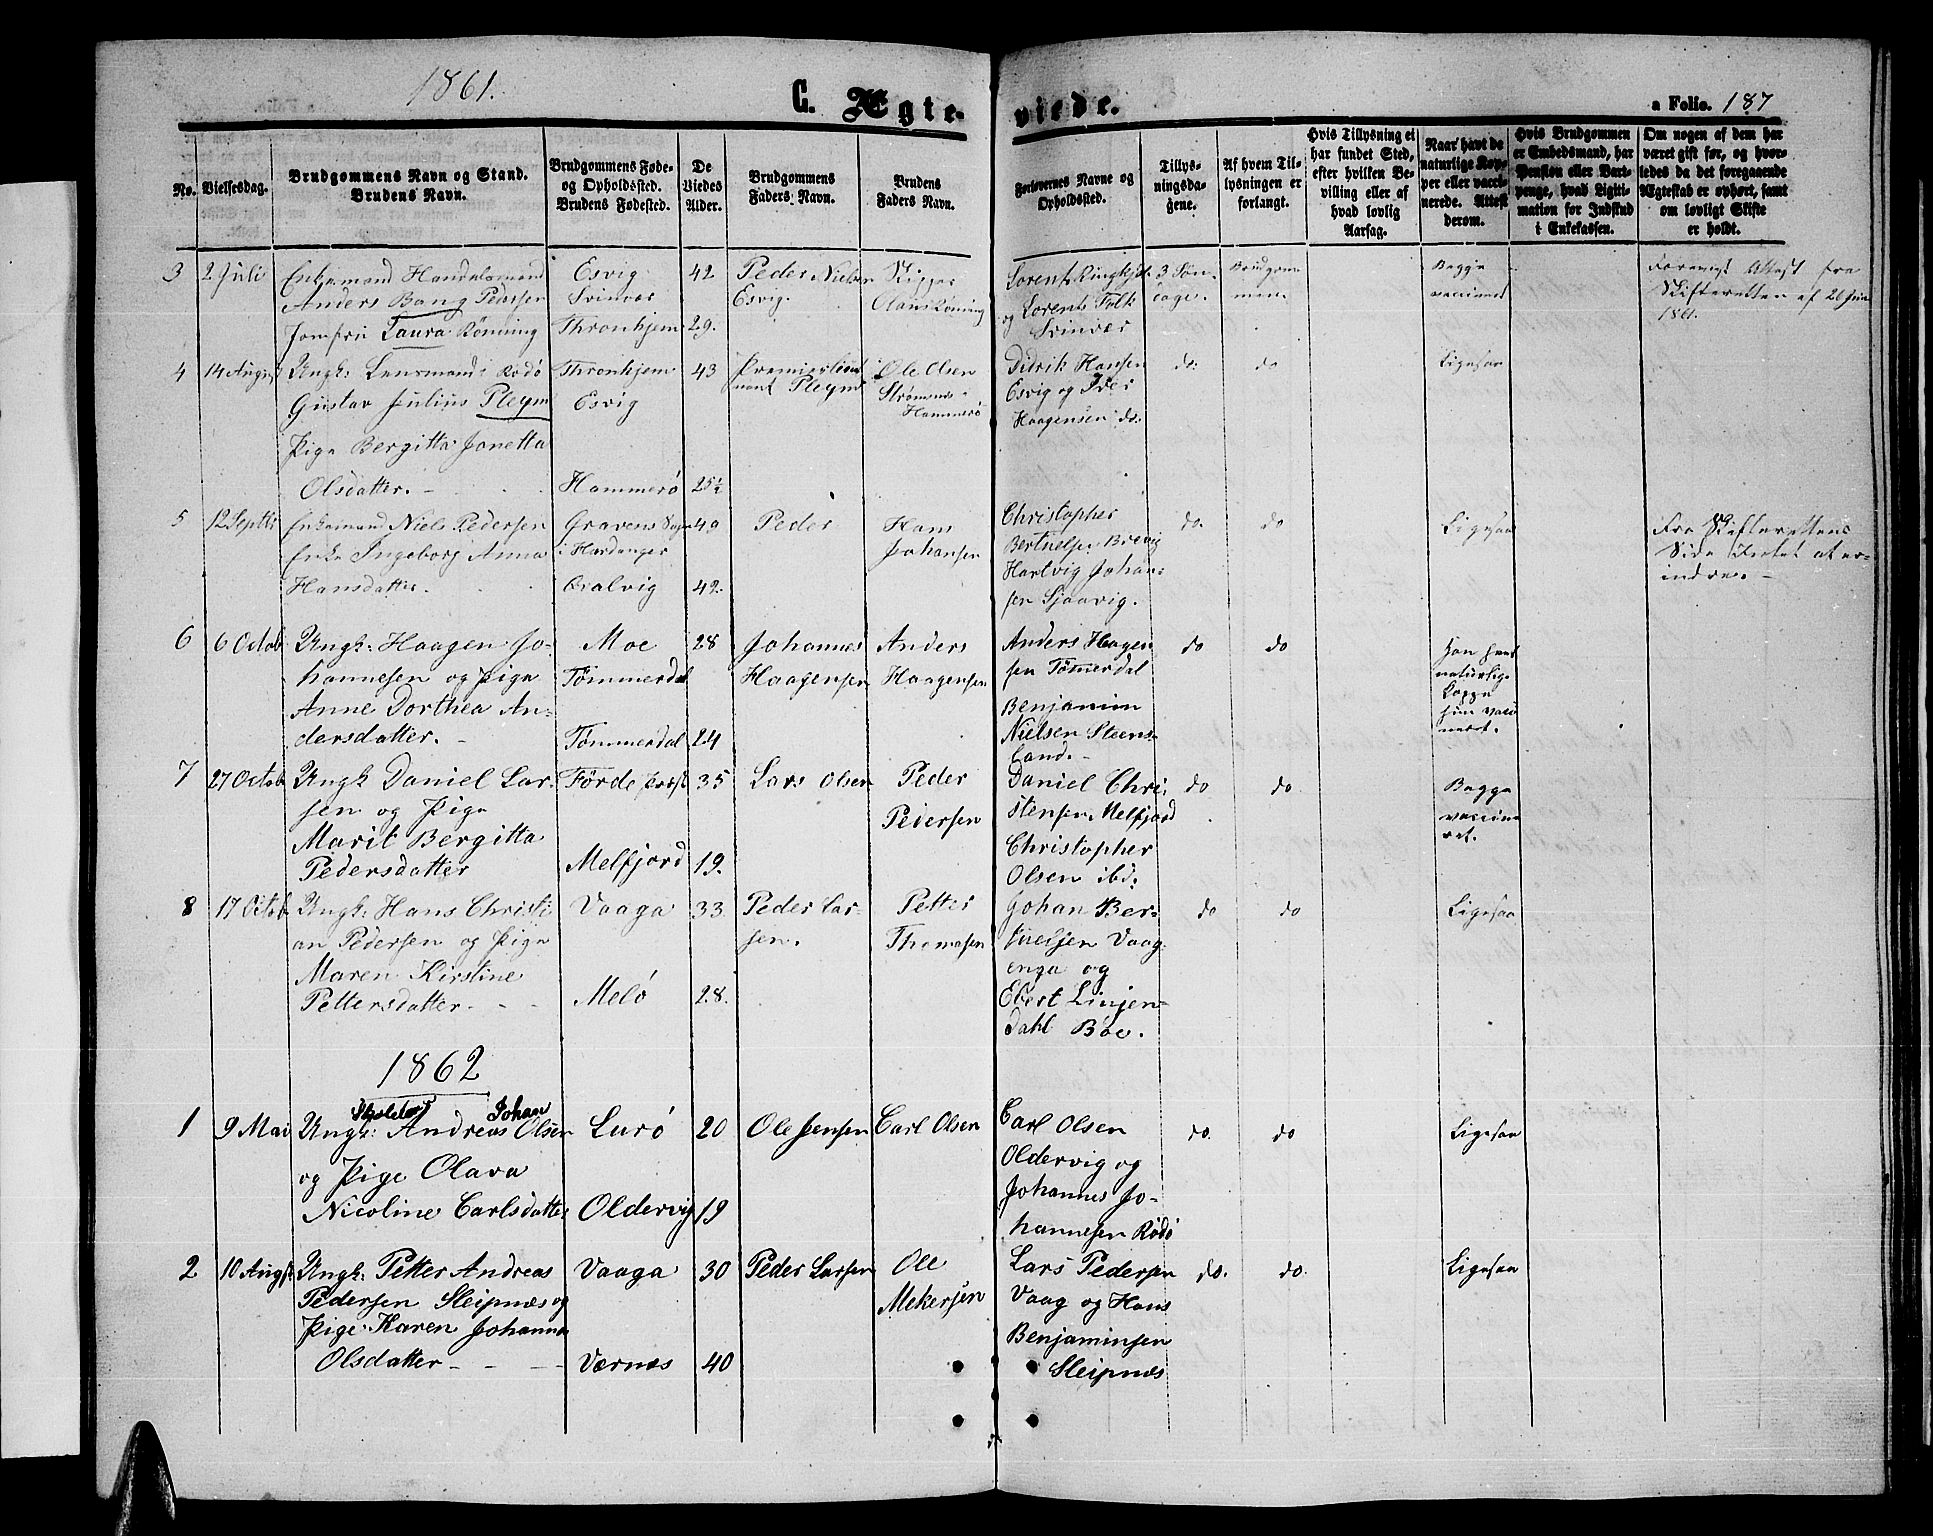 1861.
C. Ægte-
viede.
a Folio. 187
No.
Vielsesdag.
Brudgommens Navn og Stand.
Brudens Navn.
Brudgommens Føde-
og Opholdssted.
Brudens Fødested.
De
Viedes
Alder.
Brudgommens
Faders Navn.
Brudens
Faders Navn.
Forlovernes Navne og
Opholdssted.
Tillys-
ningsda-
gene.
Af hvem Til-
lysningen er
forlangt.
Hvis Tillysning ei
har fundet Sted,
efter hvilken Be-
villing eller af
hvad lovlig
Aarsag.
Naar havt de
naturlige Kop-
per eller vacci-
nerede. Attest
derom.
Hvis Brudgommen
er Embedsmand, har
Pension eller Vart-
penge, hvad Ligiti-
mation for Indskud
i Enkekassen.
Om nogen af dem har
været gift før, og hvor-
ledes da det foregaaende
Ægteskab er ophørt, samt
om lovligt Skifte
er holdt.
3 2 Juli
Enkemand Handelsmand
Anders Bang Pedersen
Jomfru Laura Rønning
Esvig
Svinvær
Thronhjem
42
29.
Peder Nielsen
Esvig.
Skipper
Claus Rønning
Lorents Ringkjøb
og Lorents Falk
Svinvær
3 Søn-
dage.
Brudgom-
men
Begge
vaccineret
Foreviist Attest fra
Skifteretten af 26 Juni
1861.
4 14 August
Ungk: Lensmand i Rødø
Gustav Julius Pleym
Pige Bergitta Jonetta
Olsdatter.
Thronhjem
Esvig
Hammerø
43
25½
Premierlieut-
nant Pleym
Ole Olsen
Strømsnes
Hammerø
Didrik Hansen
Esvig og Iver
Haagensen do.
do. do
Ligesaa
5 12 Septbr
Enkemand Niels Pedersen
Enke Ingeborg Anna
Hansdatter.
Gravens Sogn
i Hardanger
Bralvig
49
42.
Peder
Hans
Johansen
Christopher
Bertuelsen Brevig
Hartvig Johan-
sen Sjaavig.
do. do
Ligesaa
Fra Skifterettens
Side Intet at er-
indre. -
6 6 Octob
Ungk: Haagen Jo-
hannesen og Pige
Anne Dorthea An-
dersdatter. -
Moe
Tømmerdal
Tømmerdal
28
24
Johannes
Haagensen
Anders
Haagensen
Anders Haagen
sen Tømmerdal
Benjamin
Nielsen Steens-
land. -
do do
Han havt
naturlige
Kopper
hun vacci
neret.
7 27 Octob
Ungk Daniel Lar-
sen og Pige
Marit Bergitta
Pedersdatter
Førde Præst
Melfjord
35
19.
Lars Olsen
Peder
Pedersen
Daniel Chri-
stensen Melfjord
Christopher
Olsen ibd.
do do
Begge
vaccine
ret.
8 17 Octob
Ungk: Hans Christi
an Pedersen og Pige
Maren Kirstine
Pettersdatter. - -
Vaaga
Melø
33
28.
Peder Lar-
sen.
Petter
Thomasen
Johan Ber-
tuelsen Vaag-
enga og
Ebert Linjen-
dahl Bøe.
do do
Ligesaa
1862
1 9 Mai
Skolelær Johan
Ungk: Andreas Olsen
og Pige Olava
Nicoline Carlsdatter
Lurø
Oldervig
20
19
Ole Jensen
Carl Olsen
Carl Olsen
Oldervig og
Johannes Jo-
hannesen Rødø
do. do
Ligesaa
2 10 Augst
Ungk: Petter Andreas
Pedersen Sleipnæs og
Pige Karen Johanna
Olsdatter - - -
Vaaga
Værnæs
30
40
Peder Larsen
Ole
Mekersen
Lars Pedersen
Vaag og Hans
Benjaminsen
Sleipnæs
do. do.
Ligesaa